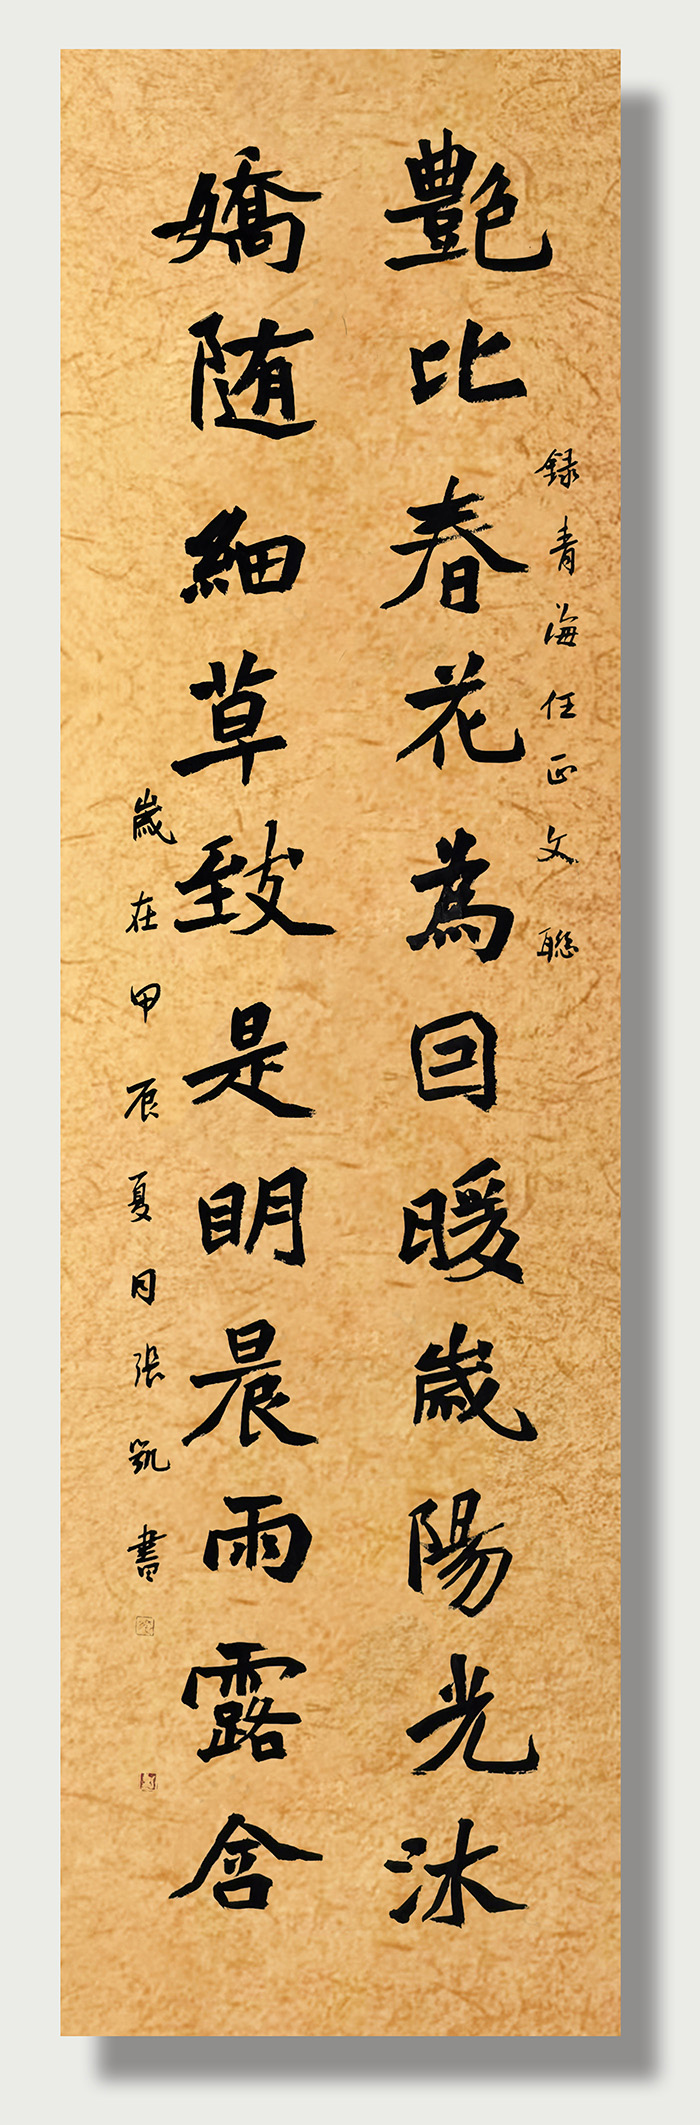 録青海任正文聯
艷比春花為回暖歲陽光沐
嬌随細草致是明晨雨露含
歲在甲辰夏月張凱書